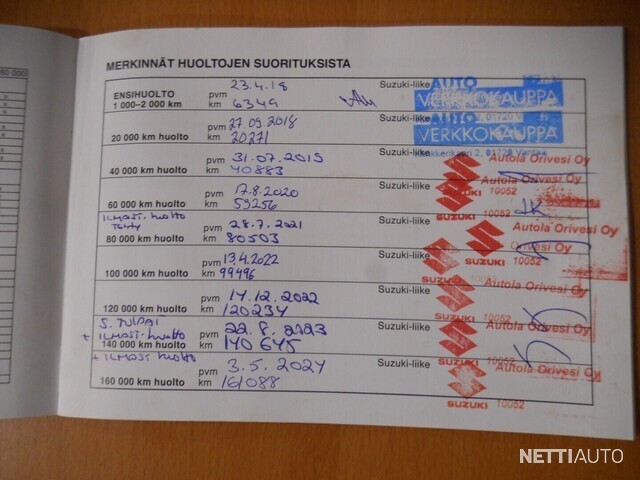 60 000
MERKINNÄT HUOLTOJEN SUORITUKSISTA
ENSIHUOLTO pvm 23.4.18 Suzuki-liike AUTO
1 000–2 000 km km 6349 VERKKOKAUPPA
pvm 27.09.2018 Suzuki-liike AUTO 01720
20 000 km huolto km 20271 VERKKOKAUPPA
2, 01720 Vantaa
pvm 31.07.2019 Suzuki-liike Autola Orivesi Oy
40 000 km huolto km 40883
pvm 17.8.2020 Suzuki-liike Autola Orivesi Oy
60 000 km huolto km 59256 SUZUKI 10052
ILMAST. huolto
pvm 28.7.2021 Suzuki-liike Autola Orivesi Oy
80 000 km huolto km 80503 SUZUKI
pvm 13.4.2022 Suzuki-liike Orivesi Oy
100 000 km huolto km 99496 SUZUKI 10052
pvm 14.12.2022 Suzuki-liike Autola Orivesi Oy
120 000 km huolto km 120234 SUZUKI
+ ILMAST. huolto pvm 22.8.2023 Suzuki-liike Autola Orivesi Oy
140 000 km huolto km 140645 SUZUKI 10052
+ ILMAST. huolto pvm 3.5.2024 Suzuki-liike Autola Orivesi Oy
160 000 km huolto km 161088 SUZUKI 10052
NETTIAUTO